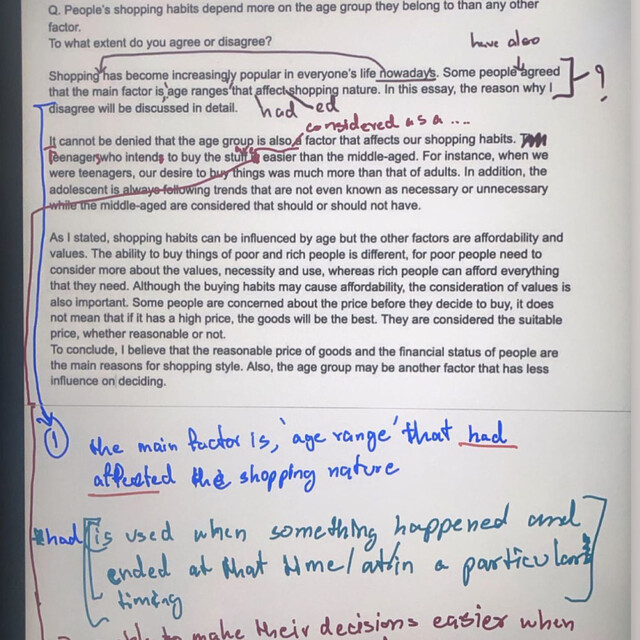 Q. People's shopping habits depend more on the age group they belong to than any other
factor.
To what extent do you agree or disagree?
have also
Shopping has become increasingly popular in everyone's life nowadays. Some people agreed
that the main factor is, age ranges that affect shopping nature. In this essay, the reason why I
?
disagree will be discussed in detail.
had ed
considered as a ....
It cannot be denied that the age group is also a factor that affects our shopping habits.
Teenagers who intends to buy the stuff is easier than the middle-aged. For instance, when we
were teenagers, our desire to buy things was much more than that of adults. In addition, the
adolescent is always following trends that are not even known as necessary or unnecessary
while the middle-aged are considered that should or should not have.
As I stated, shopping habits can be influenced by age but the other factors are affordability and
values. The ability to buy things of poor and rich people is different, for poor people need to
consider more about the values, necessity and use, whereas rich people can afford everything
that they need. Although the buying habits may cause affordability, the consideration of values is
also important. Some people are concerned about the price before they decide to buy, it does
not mean that if it has a high price, the goods will be the best. They are considered the suitable
price, whether reasonable or not.
To conclude, I believe that the reasonable price of goods and the financial status of people are
the main reasons for shopping style. Also, the age group may be another factor that has less
influence on deciding.
1 the main factor is, 'age range' that had
affected the shopping nature
*had is used when something happened and
ended at that time/at/in a particular
timing
to make their decisions easier when